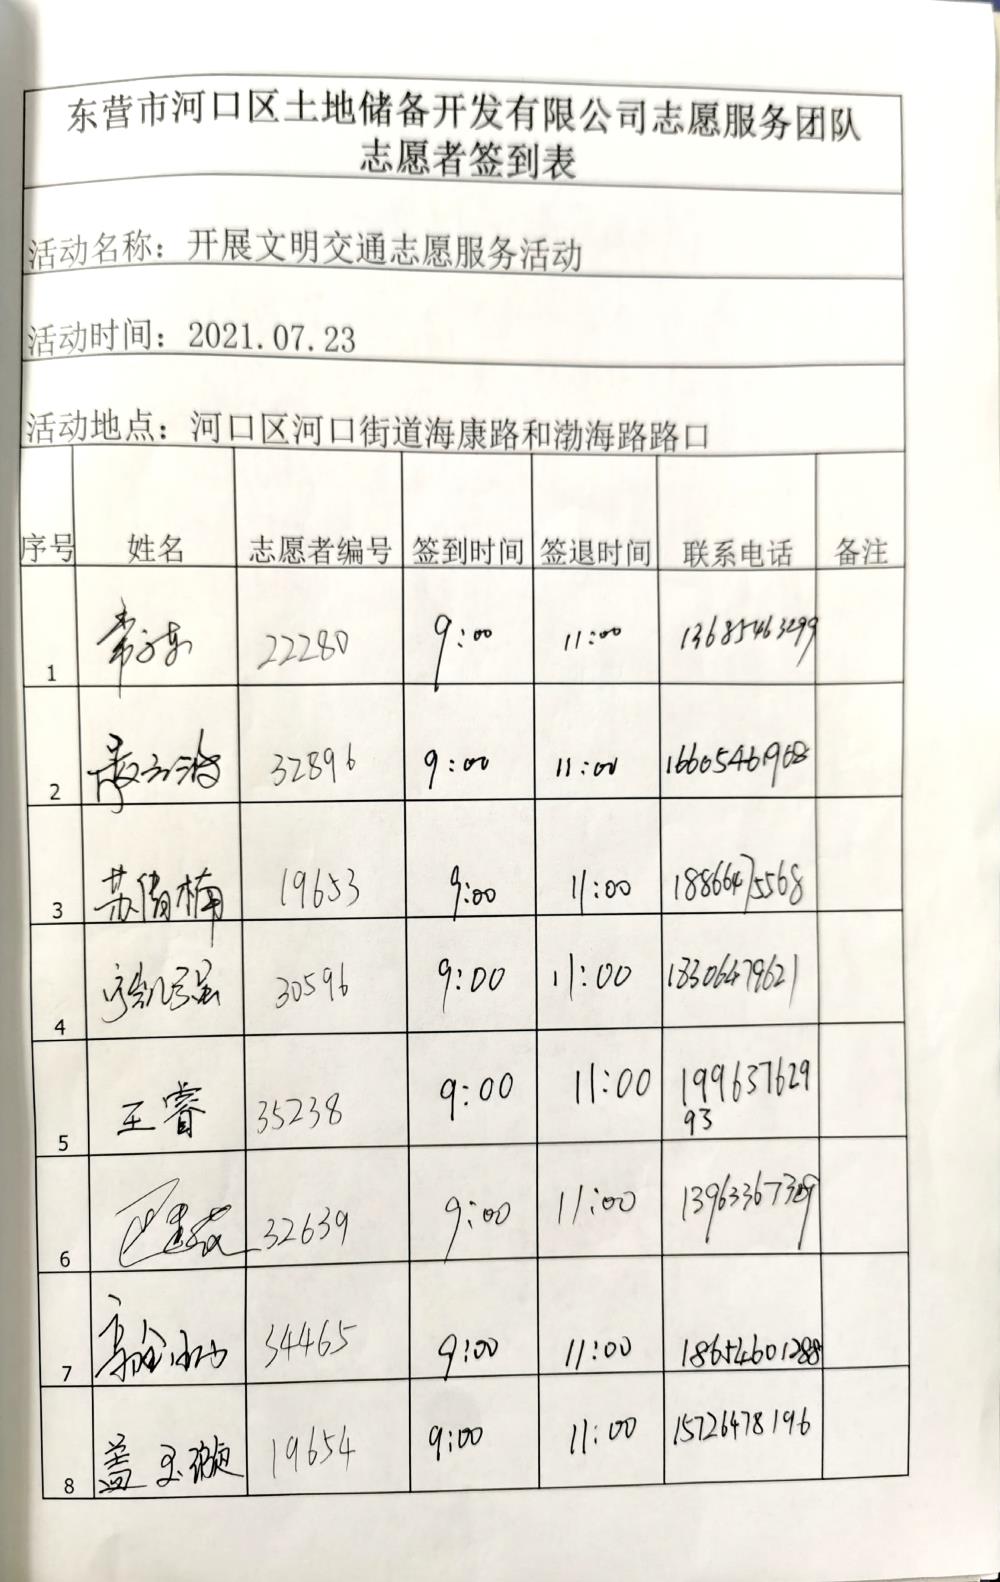 东营市河口区土地储备开发有限公司志愿服务团队
志愿者签到表
活动名称：开展文明交通志愿服务活动
活动时间：2021.07.23
活动地点：河口区河口街道海康路和渤海路路口
序号 姓名 志愿者编号 签到时间 签退时间 联系电话 备注
1 22280 9:00 11:00 13685463299
2 32896 9:00 11:00 16605461968
3 苏倩楠 19653 9:00 11:00 18866475568
4 30596 9:00 11:00 18306479621
5 王睿 35238 9:00 11:00 199637629
93
6 32639 9:00 11:00 13963367309
7 34465 9:00 11:00 18654601288
8 盖玉璇 19654 9:00 11:00 15726478196